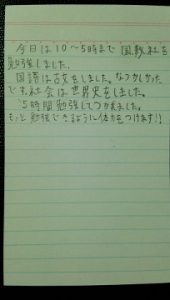 今日は10〜5時まで国数社を
勉強しました。
国語は古文をしました。なつかしかった
です。社会は世界史をしました。
5時間勉強してつかれました。
もっと勉強できるように体力をつけます!!